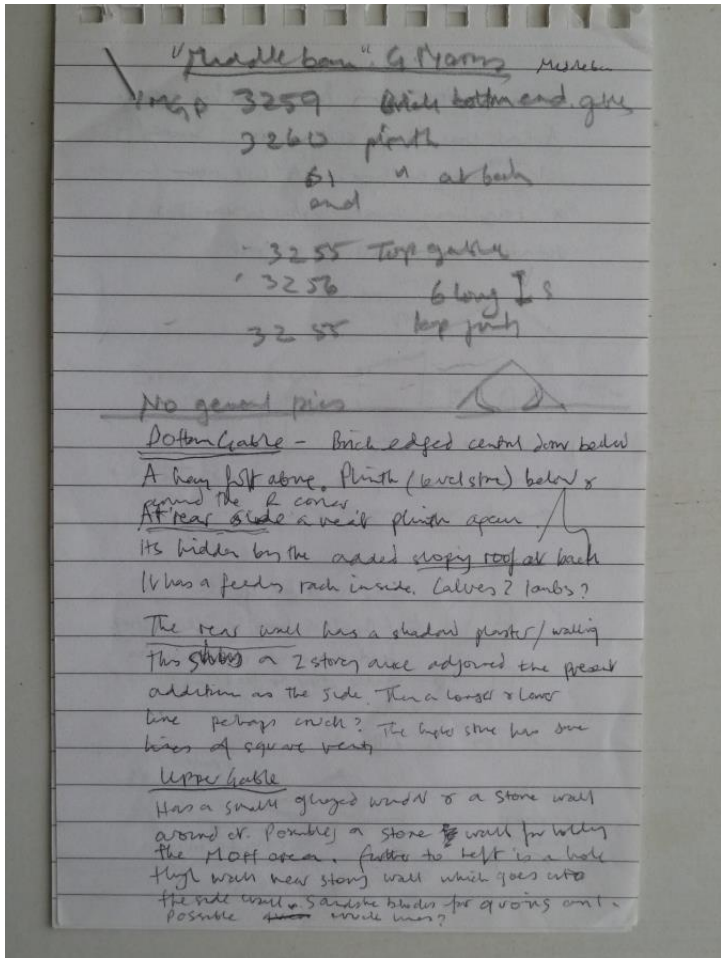 "Middle barn". G Morris
Imgs 3259 Brick bottom end. gives
3260 plinth
61 " at back
and
3255 Top gable
3256 6 long I S
3255 long joints
No general pics
Bottom Gable - Brick edged central door below
A hay loft above. Plinth (level stone) below &
around the R corner
At rear side a neat plinth again
Its hidden by the added sloping roof at back
It has a feeding rack inside. Calves? lambs?
The rear wall has a shadow plaster/walling
this shows a 2 storey once adjoined the present
addition as the side. Then a longer & lower
line perhaps couch? The stone has some
lines of square vents
Upper Gable
Has a small glazed window & a stone wall
around it. Possibly a stone wall for
the area. further to left is a hole
through wall near stony wall which goes into
the side wall. Sandstone blocks for quoins and
Possible lines?